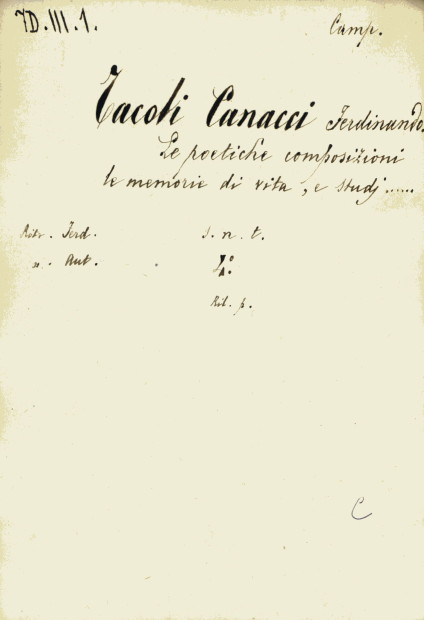 7D.III.1.
Camp.
Tacoli Canacci Ferdinando.
Le poetiche composizioni
le memorie di vita, e studj.....
Ritr. Ferd. s. n. t.
". Aut. 4.º
Ril. p.
C